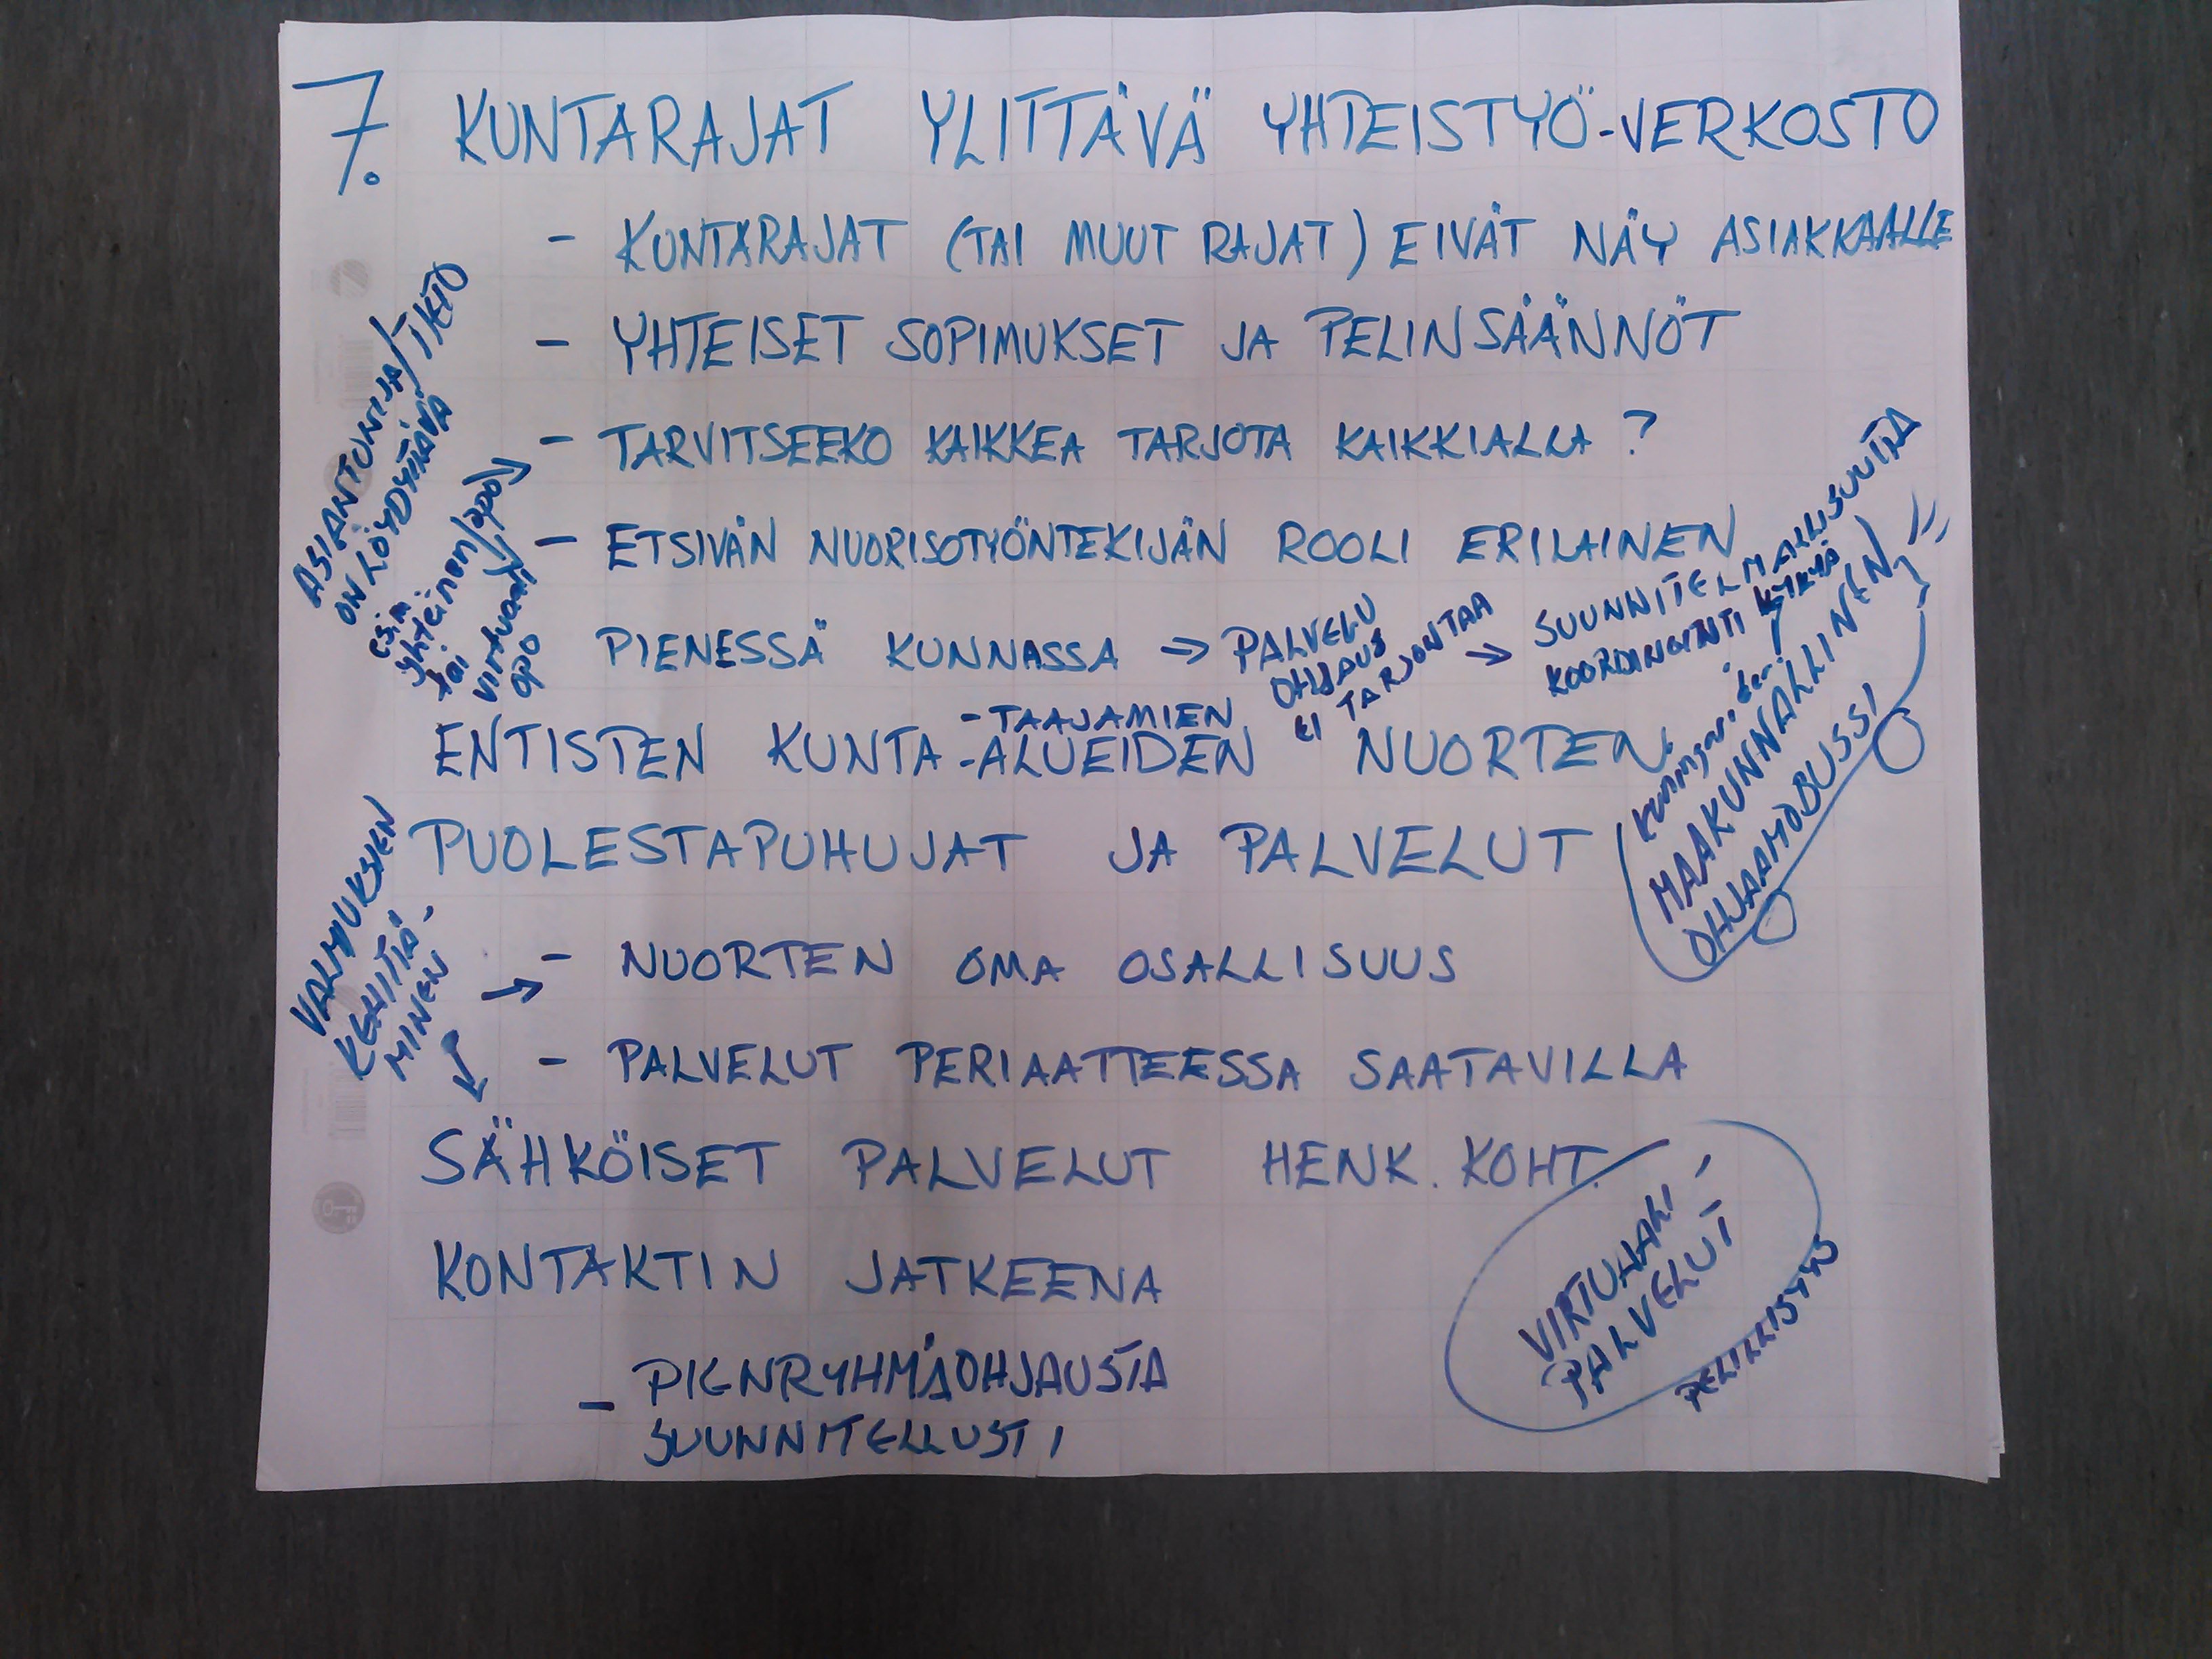 7. KUNTARAJAT YLITTÄVÄ YHTEISTYÖ-VERKOSTO
- KUNTARAJAT (TAI MUUT RAJAT) EIVÄT NÄY ASIAKKAALLE
- YHTEISET SOPIMUKSET JA PELINSÄÄNNÖT
ASIANTUNIJA/TIETO
ON LÖYDYTTÄVÄ
esim.
yhteinen/opo
tai
virtuaali
opo
- TARVITSEEKO KAIKKEA TARJOTA KAIKKIALLA ?
- ETSIVÄN NUORISOTYÖNTEKIJÄN ROOLI ERILAINEN
PIENESSÄ KUNNASSA => PALVELU
OHJAUS
EI TARJONTAA
→ SUUNNITELMALLISUUTTA
KOORDINOINTI KYKYÄ
- TAAJAMIEN
ENTISTEN KUNTA-ALUEIDEN NUORTEN
PUOLESTAPUHUJAT JA PALVELUT
MAAKUNNALLINEN
OHJAAMOBUSSI
VALMIUKSIEN
KEHITTÄ-
MINEN
- NUORTEN OMA OSALLISUUS
- PALVELUT PERIAATTEESSA SAATAVILLA
SÄHKÖISET PALVELUT HENK. KOHT.
KONTAKTIN JATKEENA
VIRTUAALI-
PALVELUT
PELILLISYYS
- PIENRYHMÄOHJAUSTA
SUUNNITELLUSTI